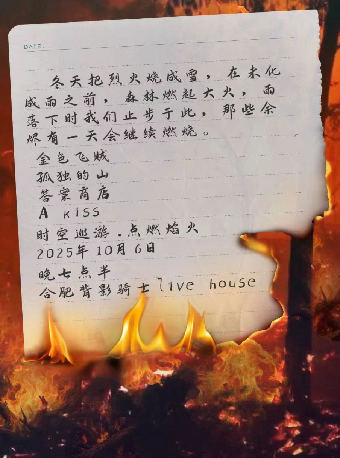 DATE:
冬天把烈火烧成雪，在未化
成雨之前，森林燃起大火，雨
落下时我们止步于此，那些余
烬有一天会继续燃烧。
金色飞贼
孤独的山
答案商店
A KISS
时空巡游.点燃焰火
2025年10月6日
晚七点半
合肥背影骑士live house